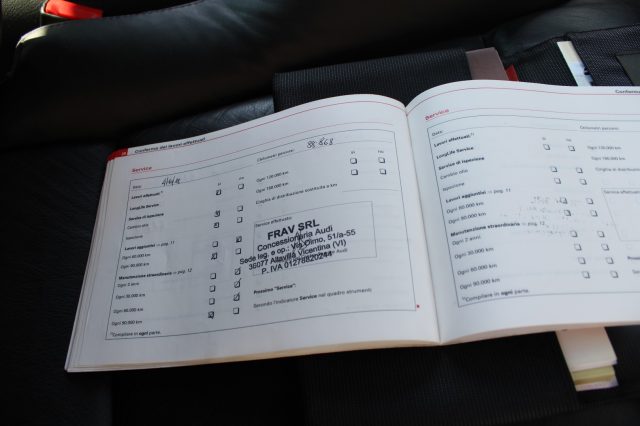 Conferma dei lavori effettuati
Service
Data:
Chilometri percorsi:
Lavori effettuati:*)
Sì
No
Sì
No
LongLife Service
Ogni 120.000 km
Service di ispezione
Ogni 180.000 km
Cambio olio
Cinghia di distribuzione sostituita a km
Ispezione
Lavori aggiuntivi → pag. 11
Ogni 60.000 km
Ogni 90.000 km
Manutenzione straordinaria → pag. 12
Ogni 2 anni
Ogni 30.000 km
Ogni 60.000 km
Ogni 90.000 km
*)Compilare in ogni parte.
Service effettuato
FRAV SRL
Concessionaria Audi
Sede leg. e op.: Via Olmo, 51/a-55
36077 Altavilla Vicentina (VI)
P. IVA 01278820244
Audi
Prossimo "Service":
Secondo l'indicatore Service nel quadro strumenti
Conferma
Service
Data:
Chilometri percorsi:
Lavori effettuati:*)
Sì
No
Sì
No
LongLife Service
Ogni 120.000 km
Service di ispezione
Ogni 180.000 km
Cambio olio
Cinghia di distribuzione sostituita
Ispezione
Lavori aggiuntivi → pag. 11
Ogni 60.000 km
Ogni 90.000 km
Manutenzione straordinaria → pag. 12
Ogni 2 anni
Ogni 30.000 km
Ogni 60.000 km
Ogni 90.000 km
*)Compilare in ogni parte.
Service effettuato
Prossimo "Service":
Secondo l'indicatore Service nel quadro